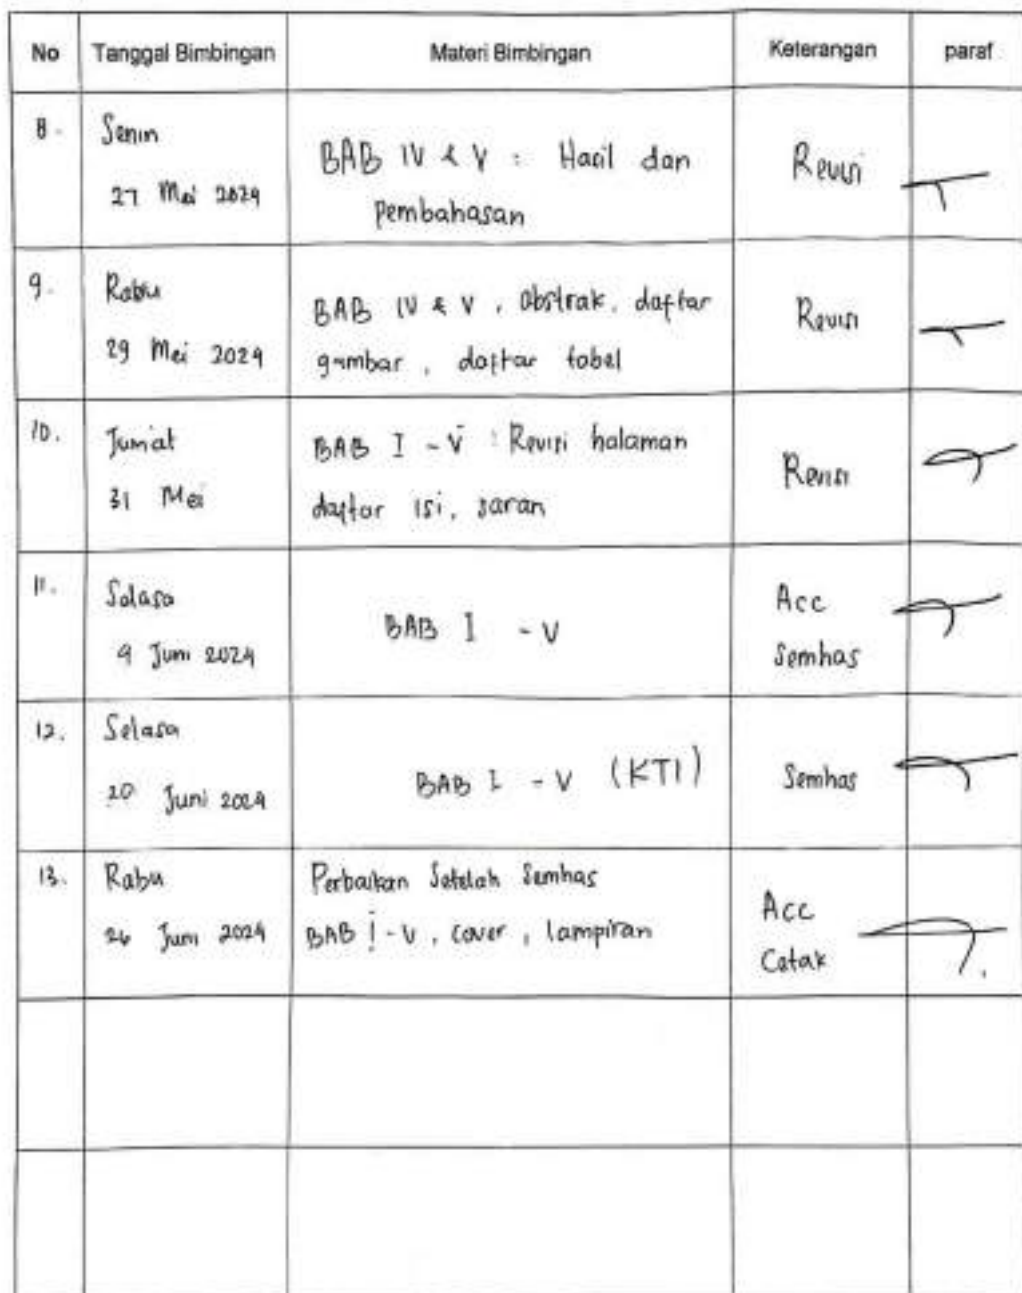 No Tanggal Bimbingan Materi Bimbingan Keterangan paraf
8. Senin
27 Mei 2024
BAB IV & V : Hasil dan
Pembahasan
Revisi
9. Rabu
29 Mei 2024
BAB IV & V, Abstrak, daftar
gambar, daftar tabel
Revisi
10. Jumat
31 Mei
BAB I - V : Revisi halaman
daftar isi, saran
Revisi
11. Selasa
4 Juni 2024
BAB I - V
Acc
Semhas
12. Selasa
20 Juni 2024
BAB I - V (KTI)
Semhas
13. Rabu
26 Juni 2024
Perbaikan Setelah Semhas
BAB I - V, cover, lampiran
Acc
Cetak